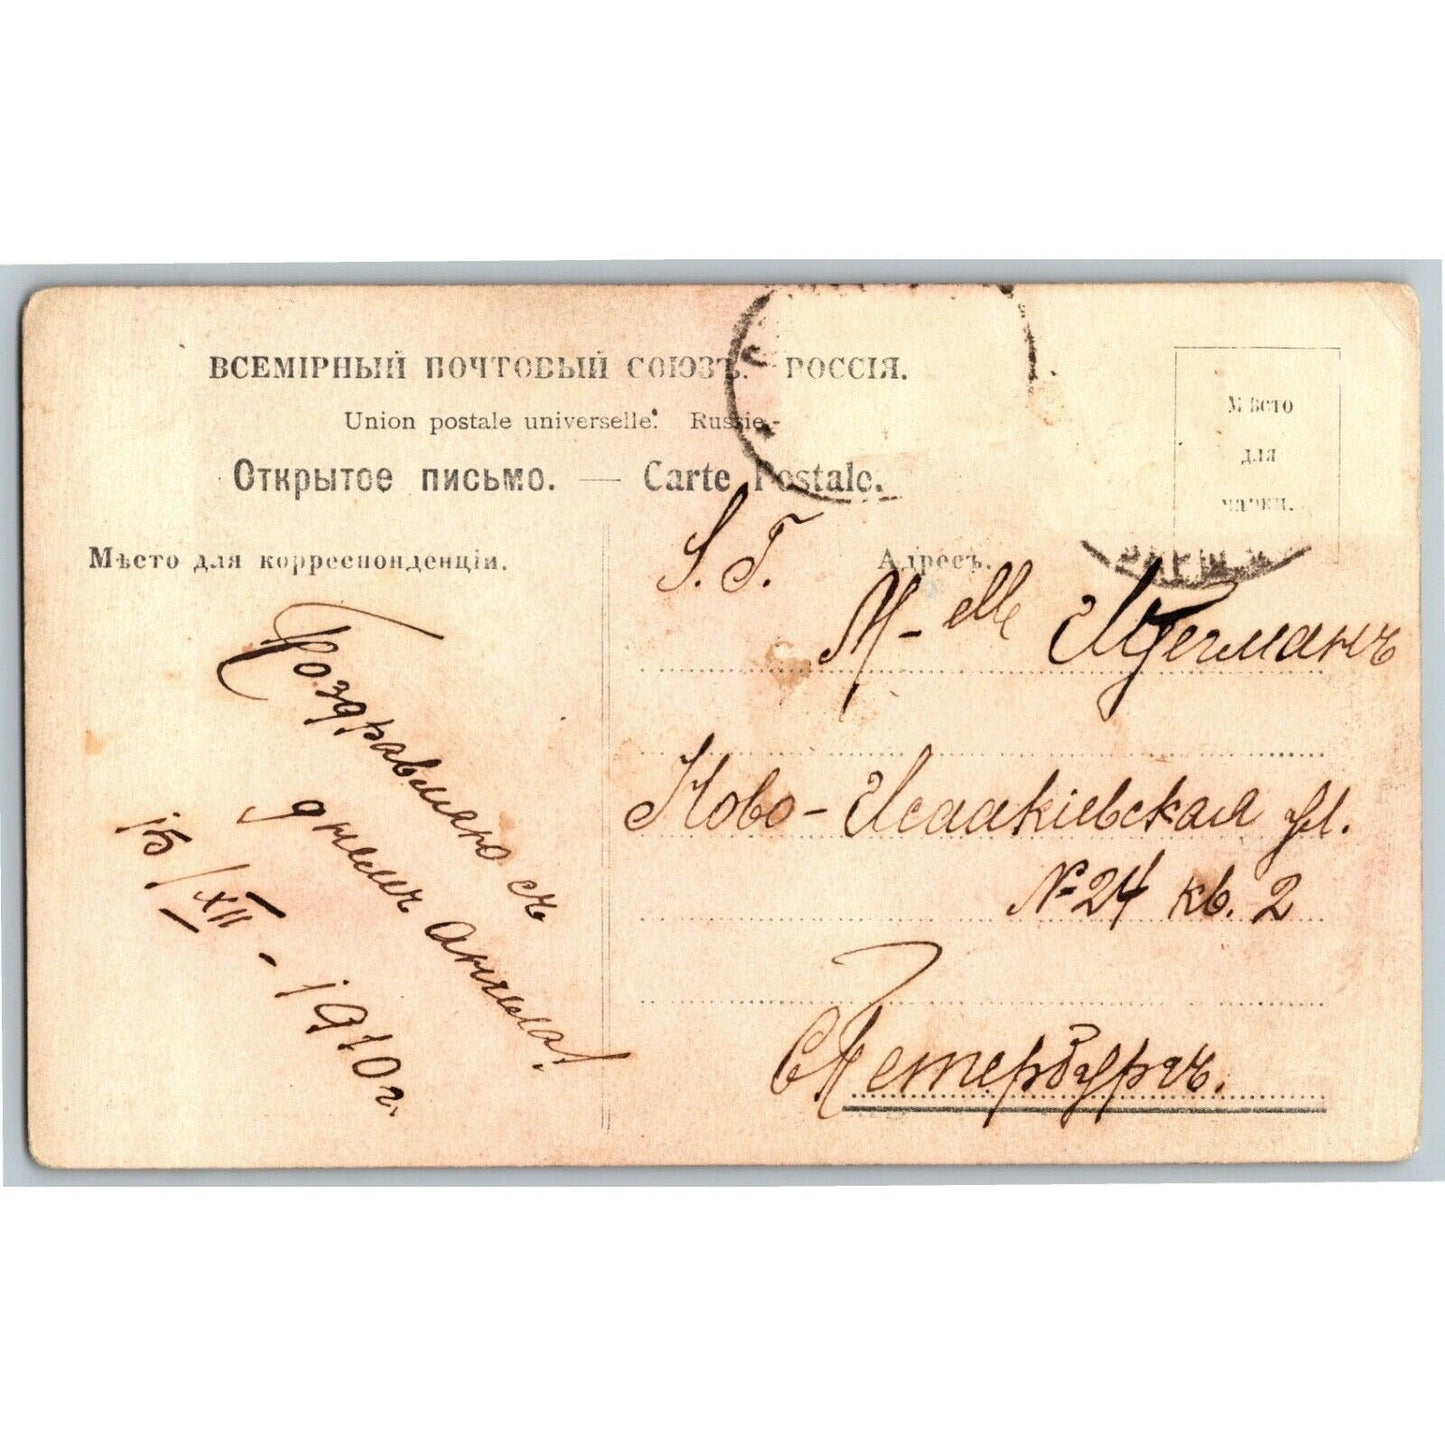 ВСЕМІРНЫЙ ПОЧТОВЫЙ СОЮЗЪ. РОССІЯ.
Union postale universelle. Russie.
Открытое письмо. — Carte Postale.
Мѣсто
для
марки.
Мѣсто для корреспонденціи.
Адресъ.
Поздравляю съ
днемъ ангела!
15/XII - 1910 г.
S. Г.
M-elle
Ново-Исаакіевская ул.
№ 24 кв. 2
СПетербургъ.